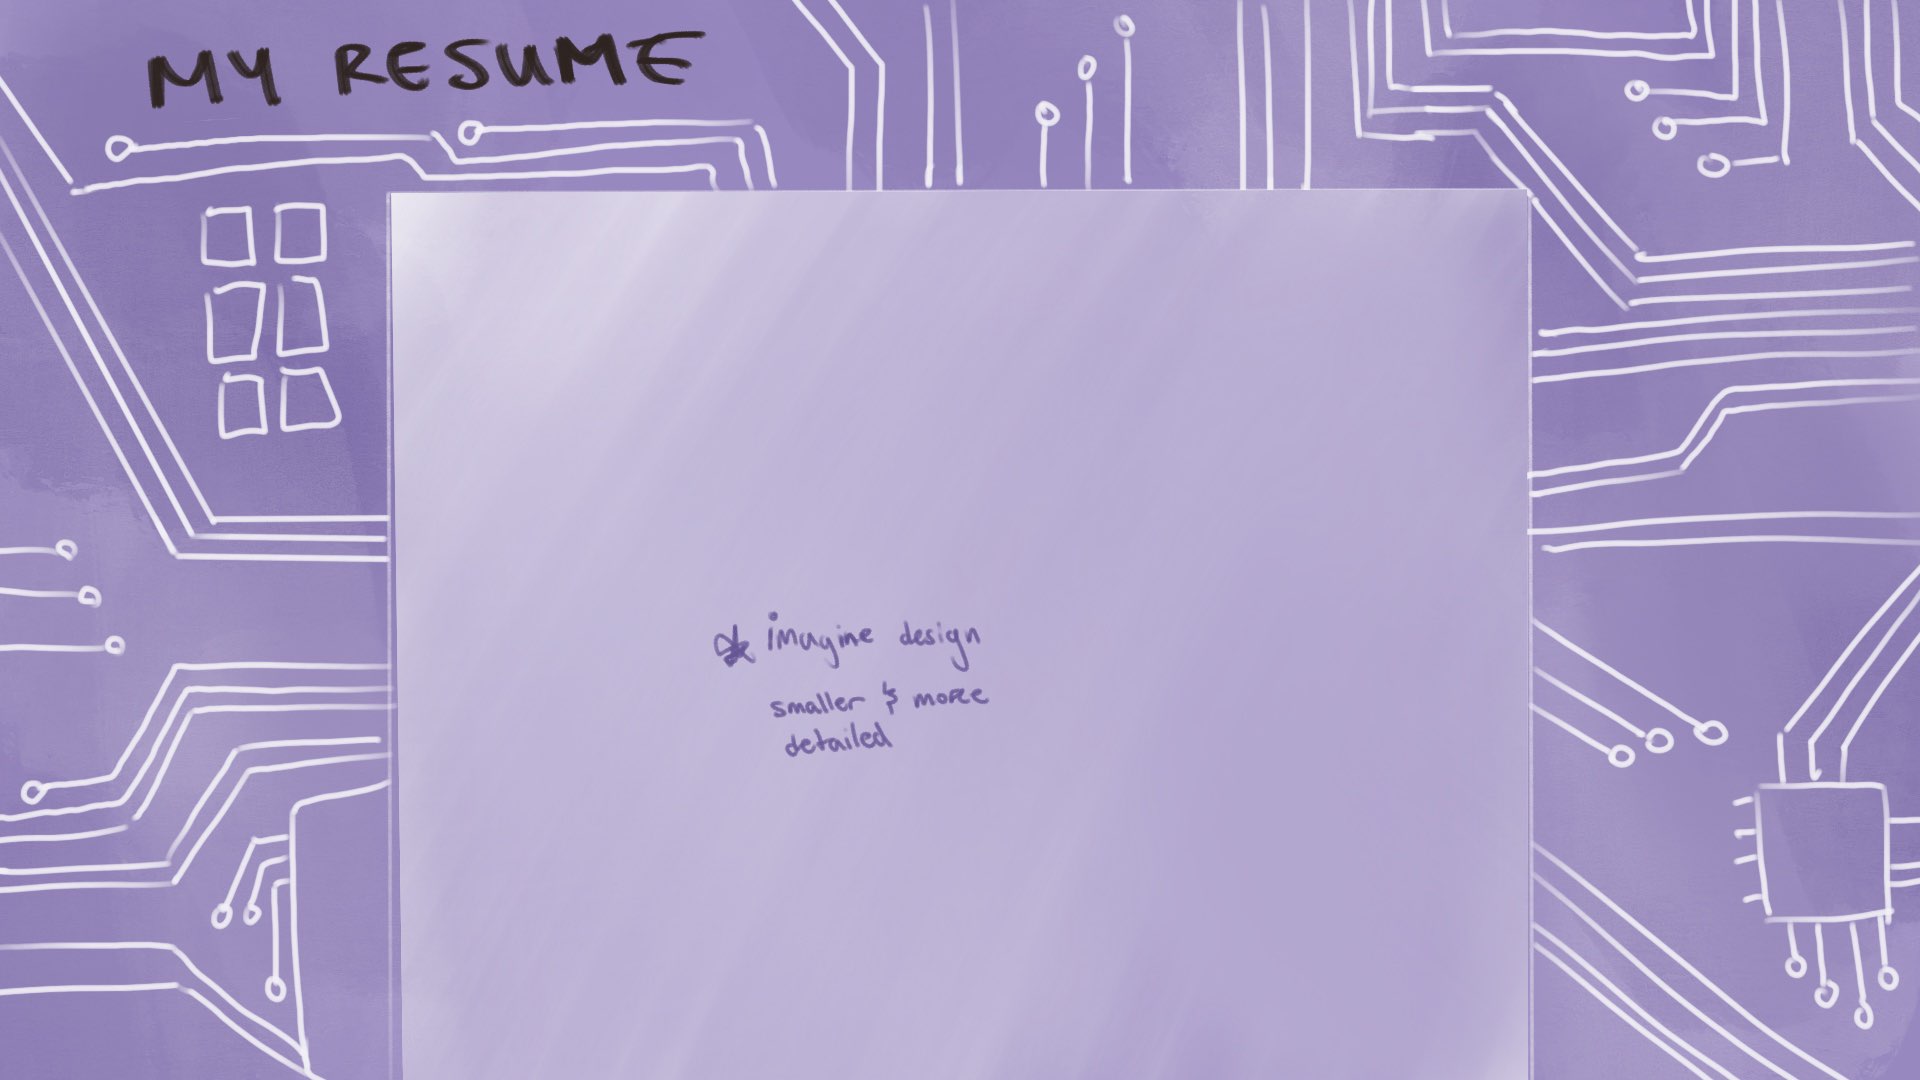 MY RESUME
* imagine design
smaller & more
detailed